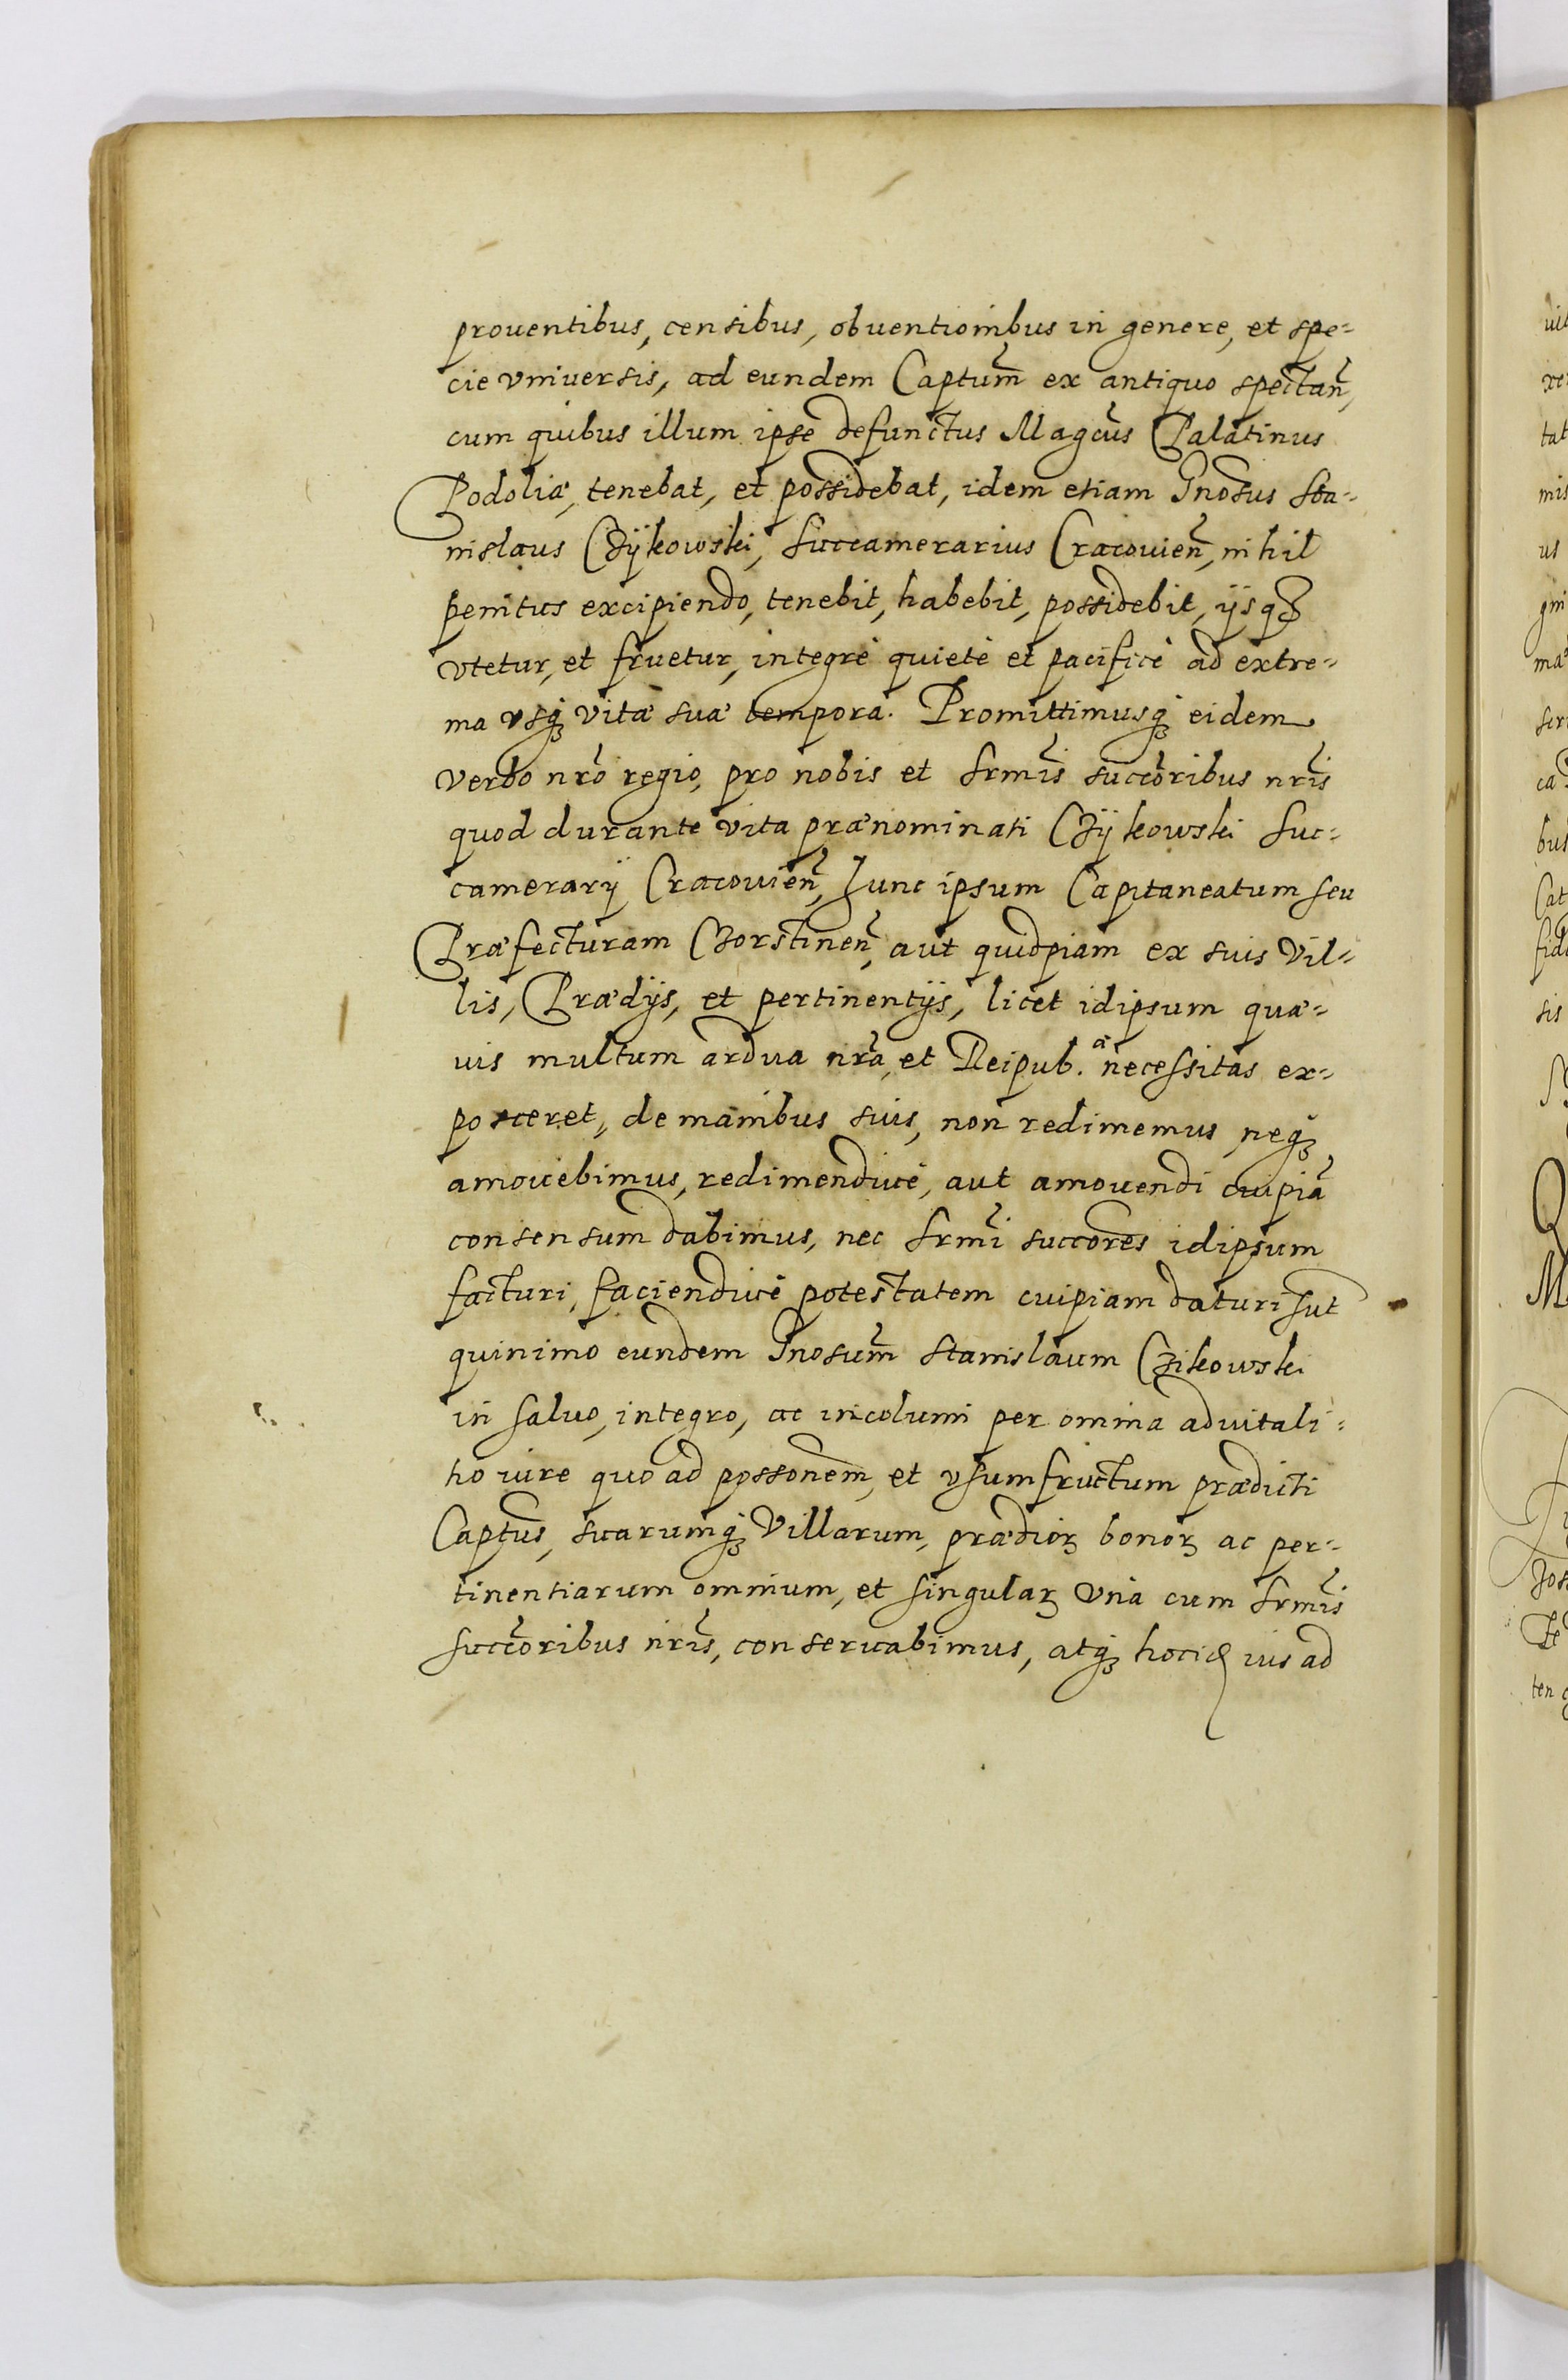 prouentibus, censibus, obuentionibus in genere, et spe-
cie vniuersis, ad eundem Captum̃ ex antiquo spectañ,
cum quibus illum ipse defunctus Magcus̃ Palatinus
Podoliæ, tenebat, et possidebat, idem etiam Gnosus Sta-
nislaus Czÿkowski, Succamerarius Cracouieñ, nihil
penitus excipiendo, tenebit, habebit, possidebit, ijsqȝ
vtetur, et fruetur, integrè quietè et pacificè ad extre-
ma vsqȝ vitæ suæ tempora. Promittimusqȝ eidem
verbo nr̃o regio, pro nobis et Srmis̃ succõribus nris̃
quod durante vita prænominati Czÿkowski Suc-
camerarÿ Cracouieñ, hunc ipsum Capitaneatum seu
Præfecturam Czorstineñ, aut quidpiam ex suis Vil-
lis, Prædijs, et pertinentijs, licet idipsum quæ-
uis multum ardua nrã, et Reipub.æ necessitas ex-
posceret, de manibus suis, non redimemus, neqȝ
amouebimus, redimendiuè, aut amouendi cuipiã
consensum dabimus, nec Srmĩ succores̃ idipsum
facturi, faciendiuè potestatem cuipiam daturi sut̃
quinimo eundem Gnosum̃ Stanislaum Czikowski
in saluo, integro, ac incolumi per omnia aduitali-
tio iure quo ad possonem̃, et vsumfructum prædicti
Captus̃, suarumqȝ Villarum, prædioꝝ bonoꝝ ac per-
tinentiarum omnium, et singulaꝝ vna cum Srmis̃
succõribus nris̃, conseruabimus, atqȝ hoc ius ad